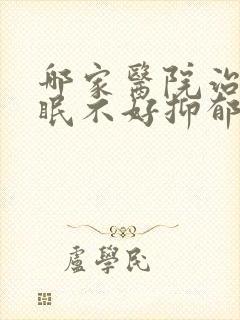 哪家醫院治
眠不好抑郁
盧學民